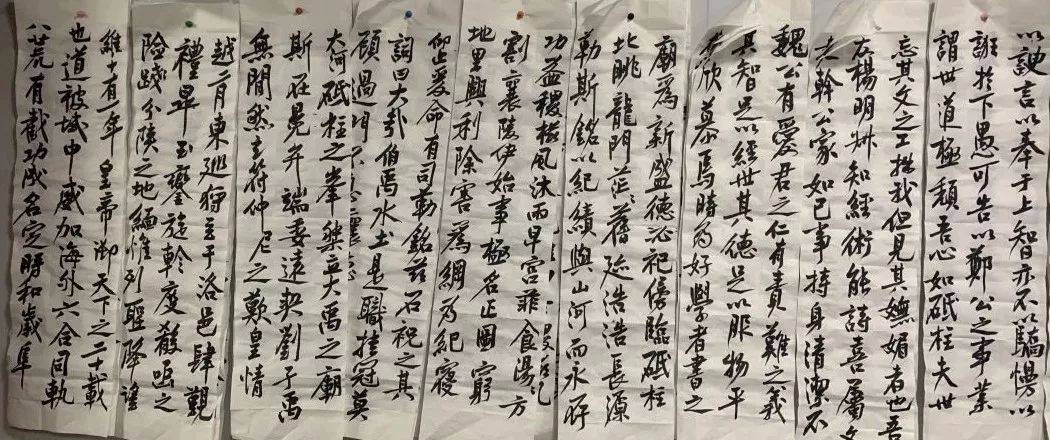 維十有一年皇帝御天下之二十載
也道被域中威加海外六合同軌
八荒有截功成名定時和歲阜
越二月東巡狩至于洛邑肆覲
禮畢玉鑾旋軫度殽函之
险踐分陝之地緬惟列聖降望
大河砥柱之峯桀立大禹之廟
斯在冕弁端委遠契劉子禹
無間然符仲尼之歎皇情
仰止爰命有司勒銘茲石祝之其
詞曰大哉伯禹水土是職挂冠莫
顧過門不
功益稷櫛風沐雨卑宫菲食湯方
割襄陵伊始事極名正圖窮
地里興利除害爲綱為紀寢
廟為新盛德必祀傍臨砥柱
北眺龍門茫茫舊迹浩浩長源
勒斯銘以紀績與山河而永存
魏公有愛君之仁有責難之義
其智足以經世其德足以服物平
生欣慕焉時為好學者書之
忘其文之工拙我但見其嫵媚者也吾
友楊明叔知經術能詩喜屬文
吏幹公家如己事持身清潔不
以諛言以奉于上智亦不以驕慢以
誑於下愚可告以鄭公之事業
謂世道極頹吾心如砥柱夫世